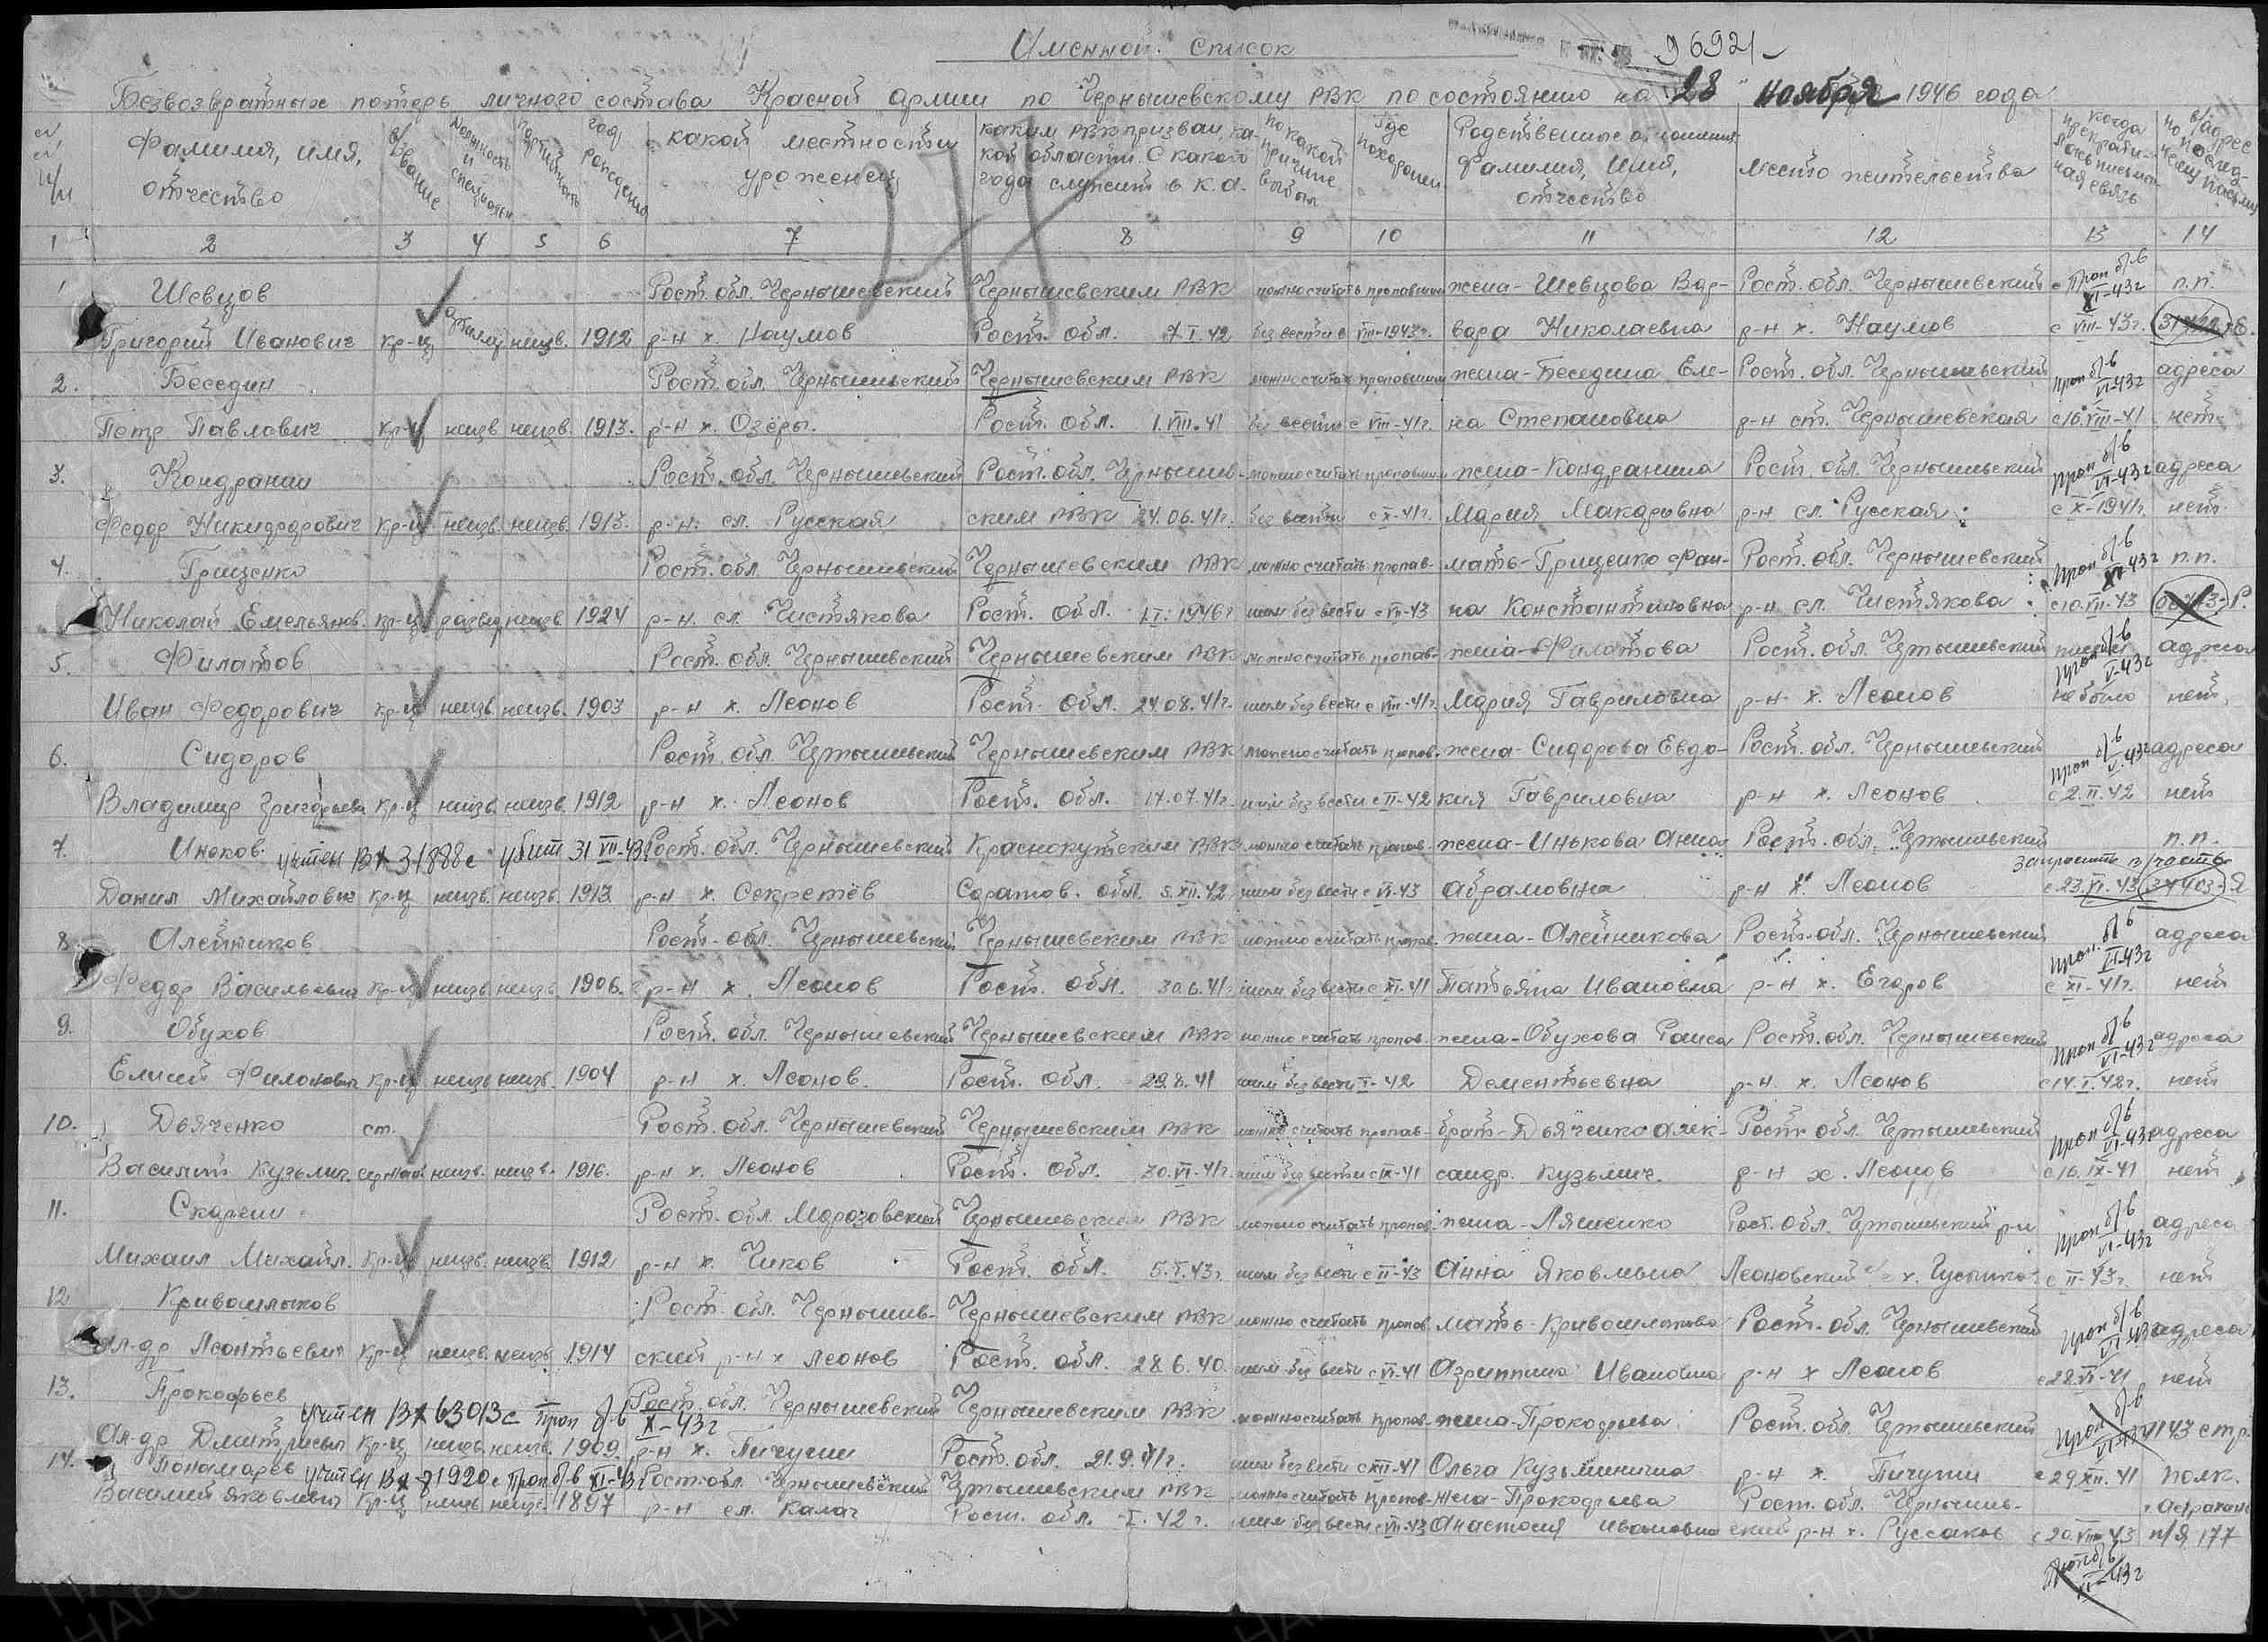 Именной список
96921
Безвозвратных потерь личного состава Красной армии по Чернышевскому РВК по состоянию на "28" ноября 1946 года
Фамилия, имя, отчество
в/звание
должность и
партийность
год рождения
какой местности уроженец
каким РВК призван, какой области. С какого года служит в К.А.
по какой причине выбыл
где похоронен
Родственные отношения Фамилия, Имя, отчество
место жительства
когда прекратилась письменная связь
в/адрес по последнему письму
1 2 3 4 5 6 7 8 9 10 11 12 13 14
1 Шевцов Рост. обл. Чернышевский Чернышевским РВК можно считать пропавшим жена-Шевцова Вар- Рост. обл. Чернышевский Проп б/в XI-43г п.п.
Григорий Иванович кр-ц неизв. 1912 р-н х. Наумов Рост. обл. 7.I.42 без вести в VIII-1943г. вара Николаевна р-н х. Наумов с VIII-43г.
2. Беседин Рост. обл. Чернышевский Чернышевским РВК можно считать пропавшим жена-Беседина Еле- Рост. обл. Чернышевский проп б/в VI-43г адреса
Петр Павлович кр-ц неизв неизв. 1913. р-н х. Озеры. Рост. обл. 1.VIII.41 без вести с VIII-41г. на Степановна р-н ст. Чернышевская с 16.VIII-41 нет
3. Кондрашин Рост. обл. Чернышевский Рост. обл. Чернышев- можно считать пропавшим жена-Кондрашина Рост. обл. Чернышевский проп б/в VI-43г адреса
Федор Никифорович кр-ц неизв. неизв. 1913. р-н. сл. Русская ским РВК 24.06.41г. без вести с X-41г. Мария Макаровна р-н сл. Русская с X-1941г. нет.
4. Грищенко Рост. обл. Чернышевский Чернышевским РВК можно считать пропав- мать-Грищенко Фаи- Рост. обл. Чернышевский проп б/в 43г п.п.
Николай Емельянов. кр-ц развед неизв 1924 р-н. сл. Чистякова Рост. обл. 1946г шим без вести с VII-43 на Константиновна р-н сл. Чистякова с 10.VII-43
5. Филатов Рост. обл. Чернышевский Чернышевским РВК можно считать пропав- жена-Филатова Рост. обл. Чернышевский писем проп б/в V-43г адреса
Иван Федорович кр-ц неизв. неизв. 1903 р-н х. Леонов Рост. обл. 24.08.41г. шим без вести с VIII-41г. Мария Гавриловна р-н х. Леонов не было нет.
6. Сидоров Рост. обл. Чернышевский Чернышевским РВК можно считать пропав. жена-Сидорова Евдо- Рост. обл. Чернышевский проп б/в V-43г адреса
Владимир Григорьев кр-ц неизв. неизв. 1912 р-н х. Леонов Рост. обл. 14.07.41г. шим без вести с II-42 кия Гавриловна р-н х. Леонов с 2.II.42 нет
7. Иноков учтен Вх 31888с убит 31 VII-43г Рост. обл. Чернышевский Краснокутским РВК можно считать пропав. жена-Инькова Анна Рост. обл. Чернышевский п.п.
запросить в/часть
Данил Михайлович кр-ц неизв. неизв. 1913 р-н х. Секретёв Саратов. обл. 5.XII.42 шим без вести с VI-43 Абрамовна р-н х. Леонов с 23.VI.43 34403-Я
8 Алейников Рост. обл. Чернышевский Чернышевским РВК можно считать пропав. жена-Алейникова Рост. обл. Чернышевский проп. б/в VI-43г адреса
Федор Васильевич кр-ц неизв неизв. 1906. р-н х. Леонов Рост. обл. 30.6.41г шим без вести с XI-41 Татьяна Ивановна р-н х. Егоров с XI-41г. нет
9. Обухов Рост. обл. Чернышевский Чернышевским РВК можно считать пропав. жена-Обухова Раиса Рост. обл. Чернышевский проп б/в VI-43г адреса
Елисей Филонович кр-ц неизв неизв. 1904 р-н х. Леонов. Рост. обл. 29.8.41 шим без вести I-42 Дементьевна р-н. х. Леонов с 14.I.42г. нет
10. Дьяченко ст. Рост. обл. Чернышевский Чернышевским РВК можно считать пропав- брат-Дьяченко Алек- Рост. обл. Чернышевский проп б/в VI-43г адреса
Василий Кузьмич. сержант неизв. неизв. 1916. р-н х. Леонов Рост. обл. 30.VI-41г. шим без вести с IX-41 сандр. Кузьмич. р-н х. Леонов с 16.IX-41 нет
11. Скарени Рост. обл. Морозовский Чернышевским РВК можно считать пропав. жена-Ляшенко Рост. обл. Чернышевский р-н проп б/в VI-43г адреса
Михаил Михайл. кр-ц неизв. неизв. 1912 р-н х. Чиков Рост. обл. 5.I.43г. шим без вести с II-43 Анна Яковлевна Леоновский с II-43г. нет
12 Кривошлыков Рост. обл. Чернышев- Чернышевским РВК можно считать пропав. мать-Кривошлыкова Рост. обл. Чернышевский проп б/в VI-43г адреса
Ал-др Леонтьевич кр-ц неизв. неизв. 1914 ский р-н х Леонов Рост. обл. 28.6.40. шим без вести с VI-41 Агриппина Ивановна р-н х Леонов с 28.VI-41 нет
13. Прокофьев учтен Вх 63013с проп б/в X-43г Рост. обл. Чернышевский Чернышевским РВК можно считать пропав. жена-Прокофьева Рост. обл. Чернышевский проп б/в 1143 стр.
Ал-др Дмитриевич кр-ц неизв. неизв. 1909. р-н х. Пичугин Рост. обл. 21.9.41г. шим без вести с XII-41 Ольга Кузьминична р-н х. Пичугин с 29.XII.41 полк.
14. Пономарев учтен Вх 71920с проп б/в XI-43г Рост. обл. Чернышевский Чернышевским РВК можно считать пропав. жена-Прокофьева Рост. обл. Чернышев- г. Астрахань
Василий Яковлевич кр-ц неизв. неизв. 1897 р-н сл. Калач Рост. обл. I.42г. шим без вести с VII-43 Анастасия Ивановна ский р-н х. Руссаков с 20.VIII-43 п/я 177
проп б/в XI-43г